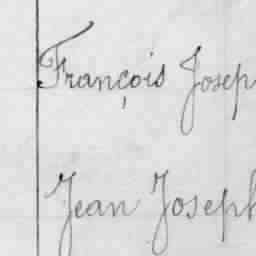 François Josep
Jean Joseph